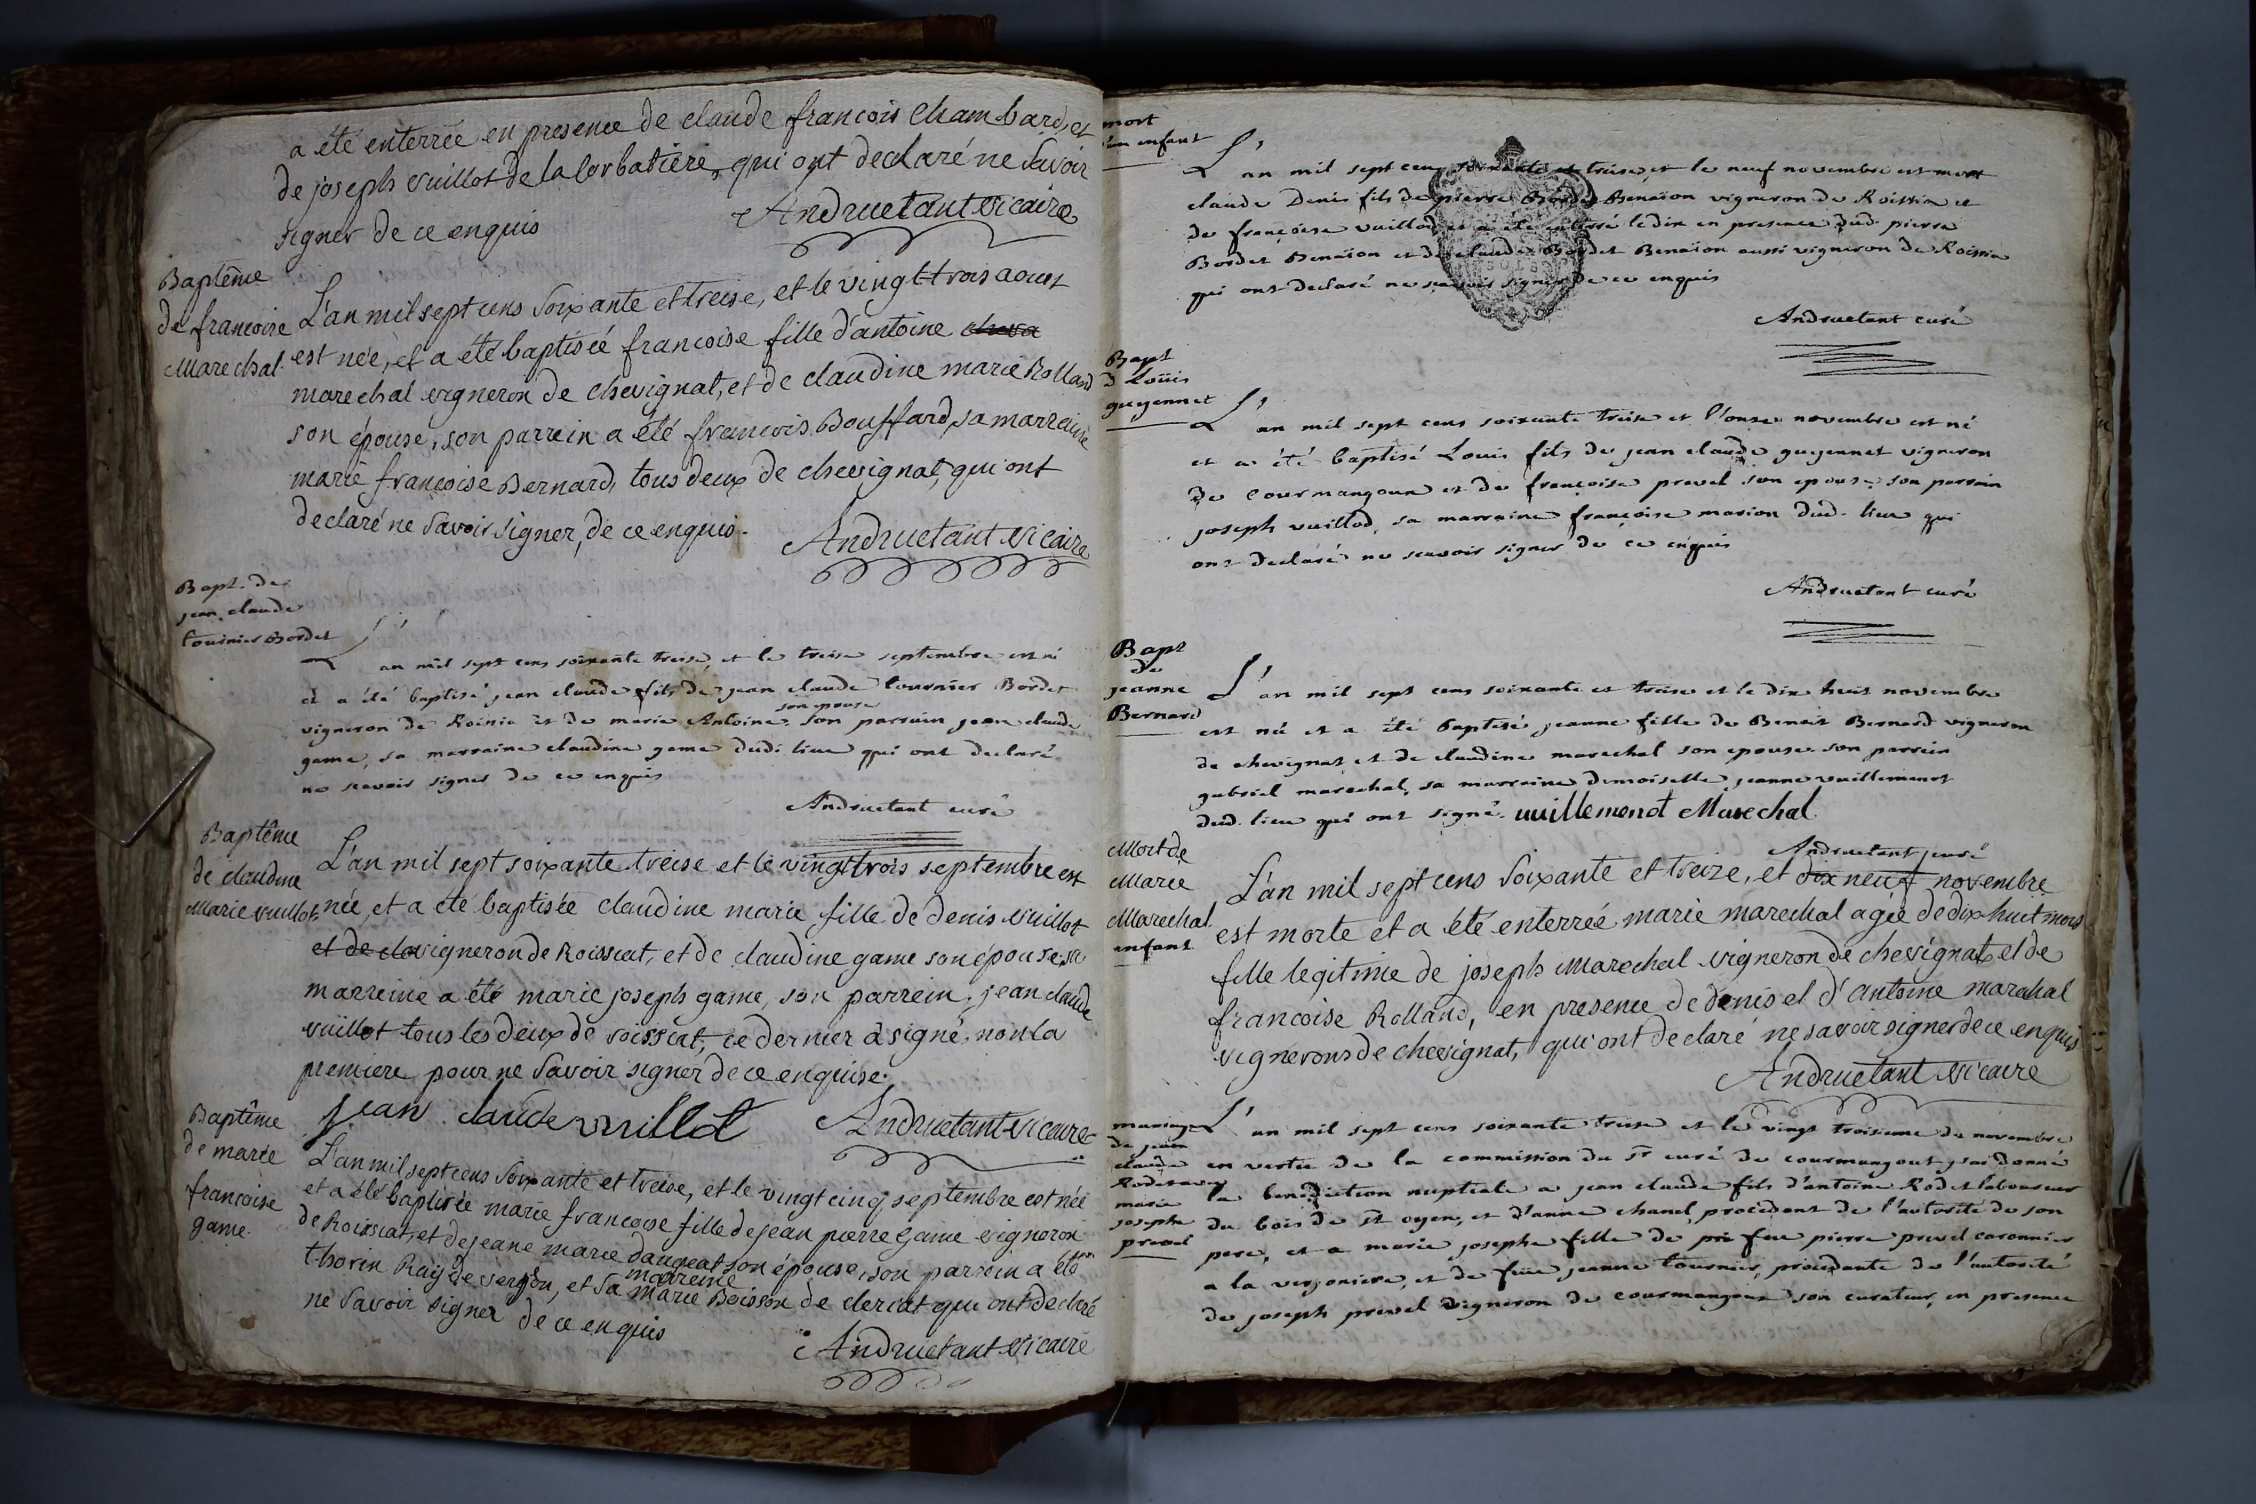 a été enterrée en presence de claude francois Chambard, et
de joseph vuillot de la Corbatiere, qui ont declaré ne savoir
signer de ce enquis
Andruetant vicaire
Baptême
de francoise
Marechal.
L'an mil sept cens soixante et treise, et le vingt trois aoust
est née, et a été baptisée francoise fille d'antoine
marechal vigneron de chevignat, et de claudine marie Rolland
son épouse, son parrein a été francois Bouffard, sa marreine
marie francoise Bernard, tous deux de chevignat, qui ont
declaré ne savoir signer, de ce enquis.
Andruetant vicaire
Bapt. de
jean claude
tournier Bordet
L'an mil sept cens soixante treise, et le treise septembre est né
et a été baptisé jean claude fils de jean claude tournier Bordet
vigneron de Roinia et de marie Antoine son epouse son parrain jean claude
game, sa marraine claudine game dudi lieu qui ont declaré
ne scavoir signer de ce enquis
Andruetant curé
Baptême
de claudine
Marie vuillot
L'an mil sept soixante treise et le vingt trois septembre est
née, et a été baptisée claudine marie fille de denis vuillot
et de cla vigneron de Roissiat, et de claudine game son épouse, sa
marreine a été marie joseph game, son parrein, jean claude
vuillot tous les deux de roissiat, ce dernier a signé, non la
premiere pour ne savoir signer de ce enquise.
jean claude vuillot Andruetant vicaire
Baptême
de marie
francoise
game.
L'an mil sept cens soixante et treise, et le vingt cinq septembre est née
et a été baptisée marie francoise fille de jean pierre Game vigneron
de Roissiat, et de jeane marie dangeat son épouse, son parrein a été
thorin Ray de verjon, et sa marreine marie Boisson de cleriat qui ont declaré
ne savoir signer de ce enquis
Andruetant vicaire
mort
d'un enfant
L'an mil sept cens soixante et treise, et le neuf novembre est mort
claude Denis fils de pierre Bordet Benaion vigneron de Roissia et
de françoise vuillod et a été enterré le dix en presence dud. pierre
Bordet Benaïon et de claude Bordet Benaïon aussi vigneron de Roissia
qui ont declaré ne scavoir signer de ce enquis
Andruetant curé
Bapt
d Loüis
guyennet
L'an mil sept cens soixante treise et l'onze novembre est né
et a été baptisé Louis fils de jean claude guyennet vigneron
de Courmangoux et de françoise prevel son epouse, son parrain
joseph vuillod, sa marraine françoise marion dud. lieu qui
ont declaré ne scavoir signer de ce enquis
Andruetant curé
Bapt
de
jeanne
Bernard
L'an mil sept cens soixante et treise et le dix huit novembre
est née et a été baptisée jeanne fille de Benoit Bernard vigneron
de chevignat et de claudine marechal son epouse son parrein
gabriel marechal, sa marraine demoiselle jeanne vuillemenot
dud. lieu qui ont signé. vuillemenot Marechal
Andruetant curé
Mort de
Marie
Marechal
enfant
L'an mil sept cens soixante et treize, et dix neuf novembre
est morte et a été enterrée marie marechal agée de dix-huit mois
fille legitime de joseph Marechal vigneron de chevignat, et de
francoise Rolland, en presence de denis et d'antoine marechal
vignerons de chevignat, qui ont declaré ne savoir signer de ce enquis
Andruetant vicaire
mariage
de jean
claude
Rodet avec
marie
josephe
prevel
L'an mil sept cens soixante treise et le vingt troisieme de novembre
en vertu de la commission du Sr curé de courmangoux j'ai donné
la benediction nuptiale a jean claude fils d'antoine Rodet laboureur
du bois de St oyen, et d'anne chanel, procedent de l'autorité de son
pere, et a marie josephe fille de feu pierre prevel caronnier
a la verjoniere, et de feüe jeanne tournier, procedante de l'autorité
de joseph prevel vigneron de courmangoux son curateur, en presence